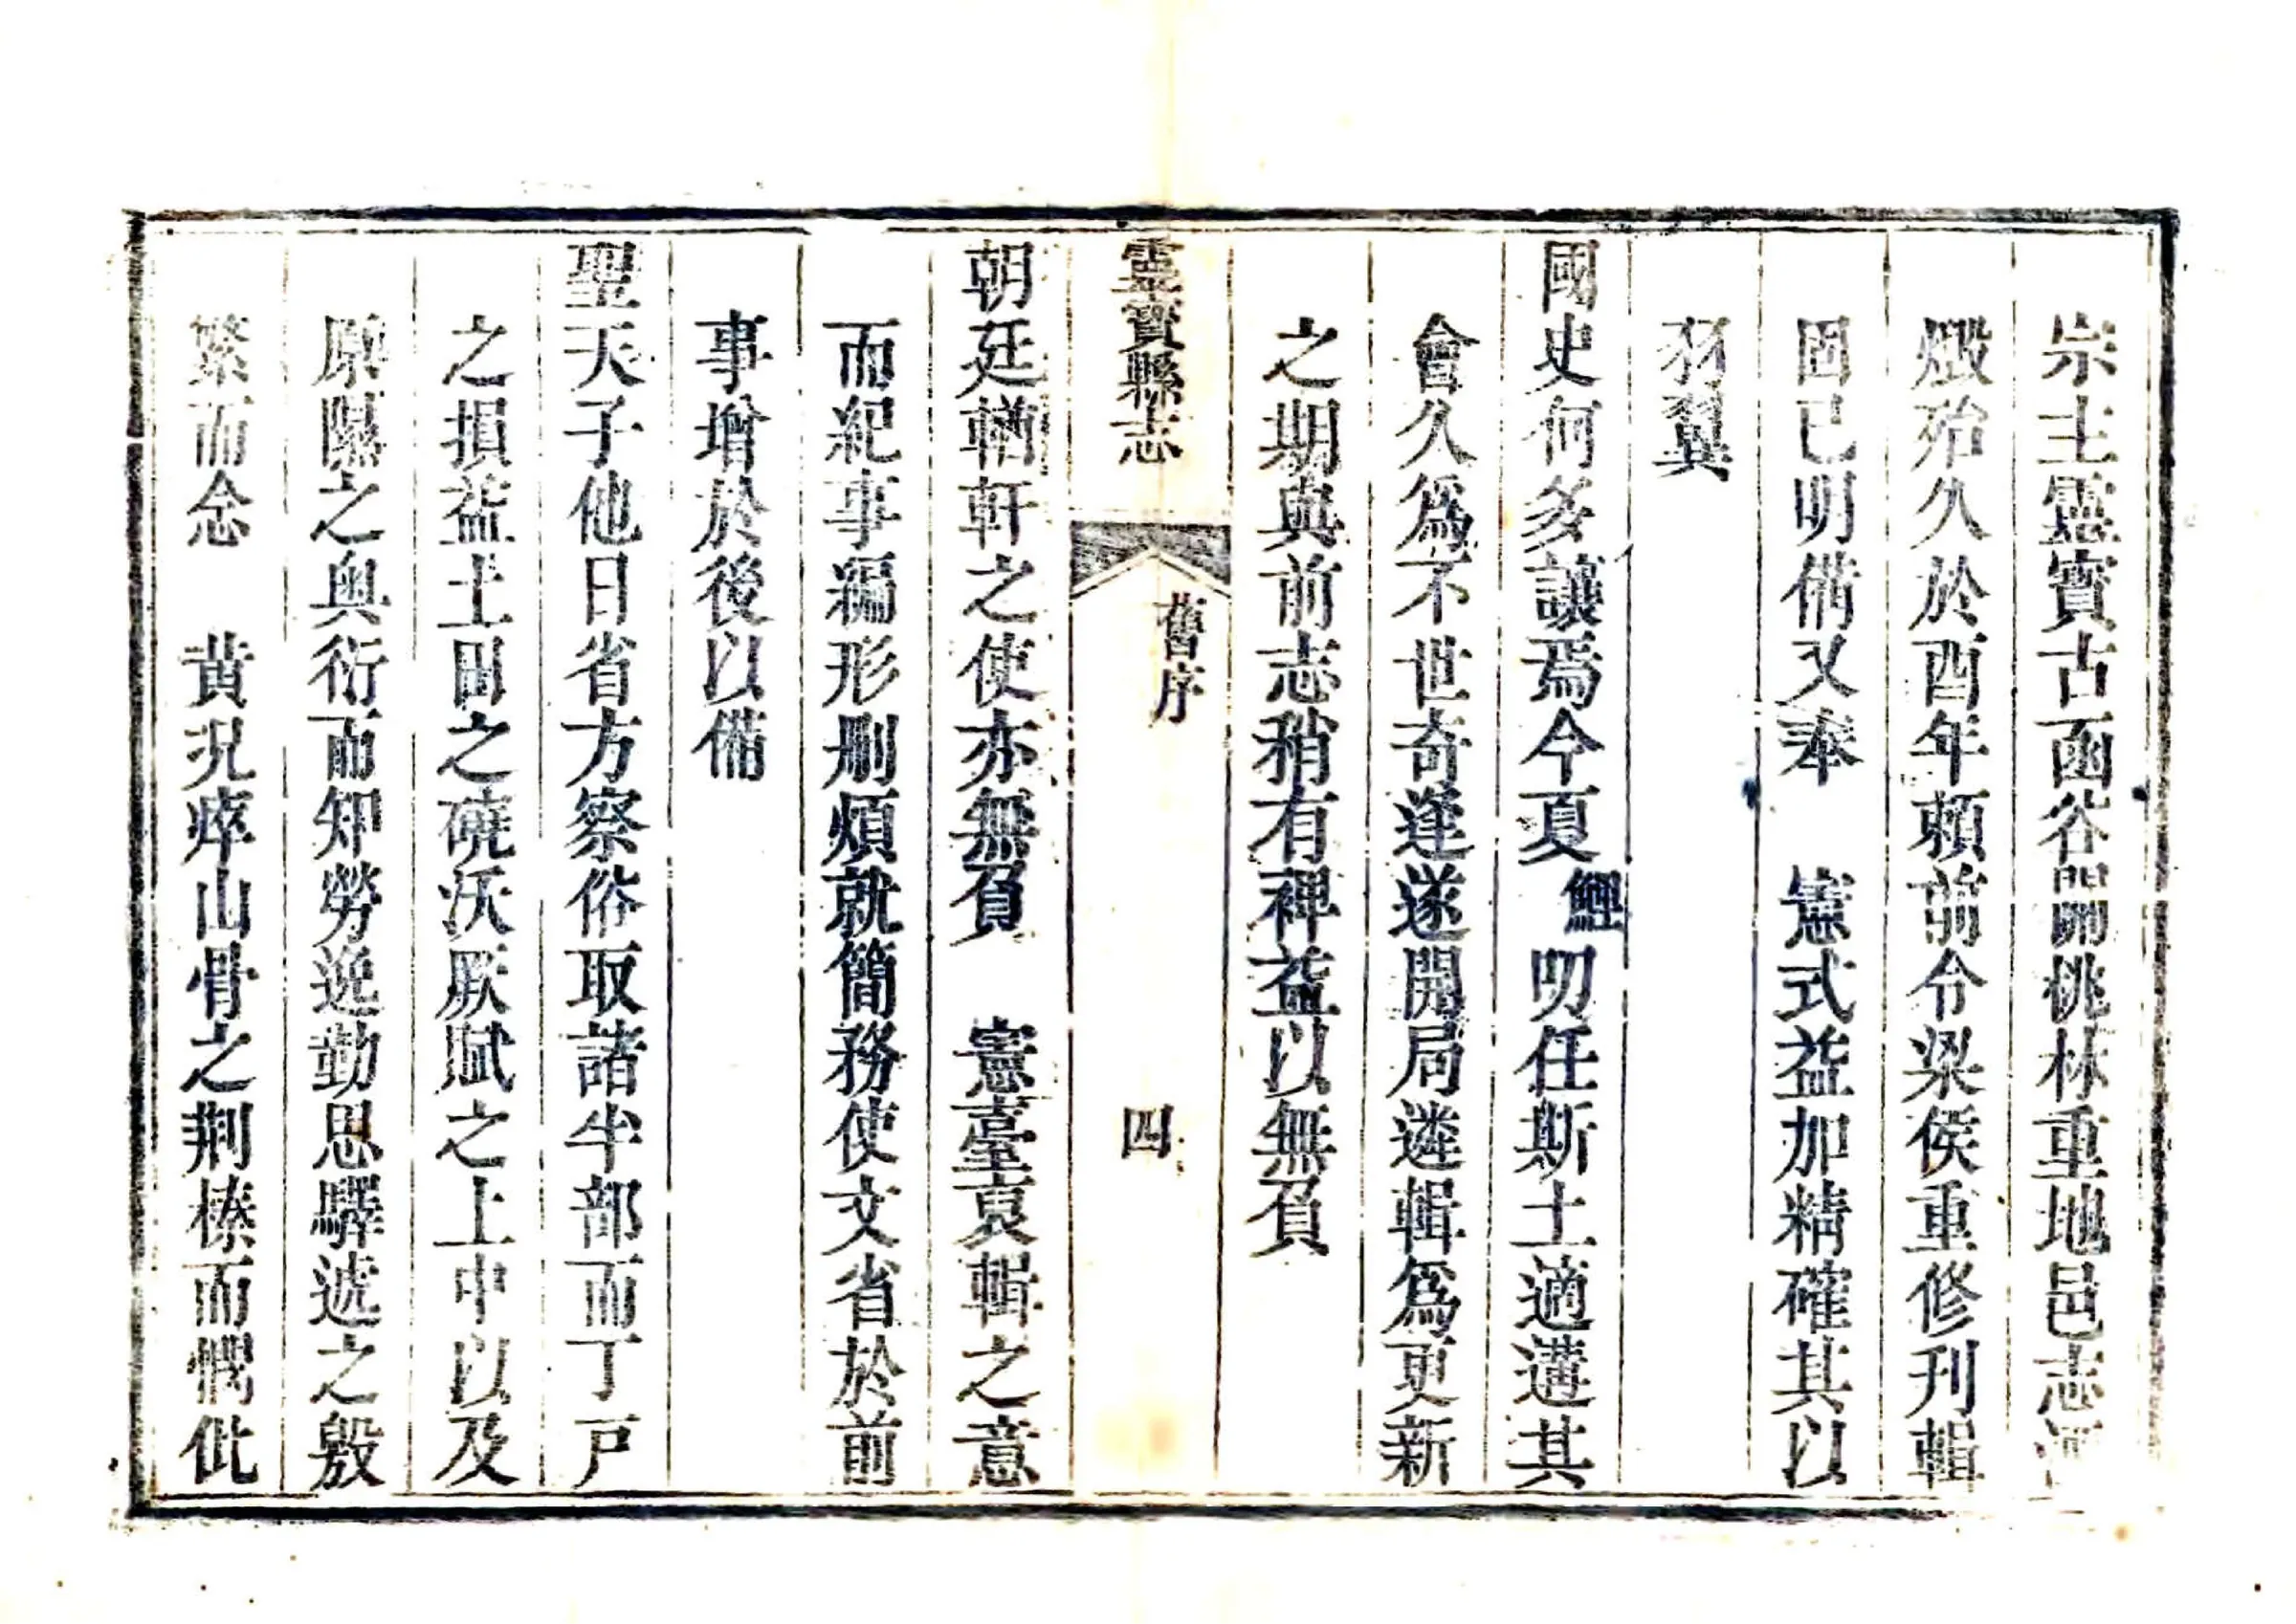 宗主靈寶古函谷關桃林重地邑志湮
燬殆久於酉年頼前令梁侯重修刋輯
固已明備又奉　憲式益加精確其以
羽翼
國史何多讓焉今夏鯉叨任斯土適遘其
會久爲不世奇逢遂開局遴輯爲更新
之期與前志稍有裨益以無負
靈寶縣志
舊序
四
朝廷輶軒之使亦無負　憲臺裒輯之意
而紀事編形刪煩就簡務使文省於前
事增於後以備
聖天子他日省方察俗取諸半部而丁戸
之損益土田之磽沃厥賦之上中以及
原隰之奥衍而知勞逸勤思驛遞之
繁而念　黄况瘁山骨之荆榛而憫仳